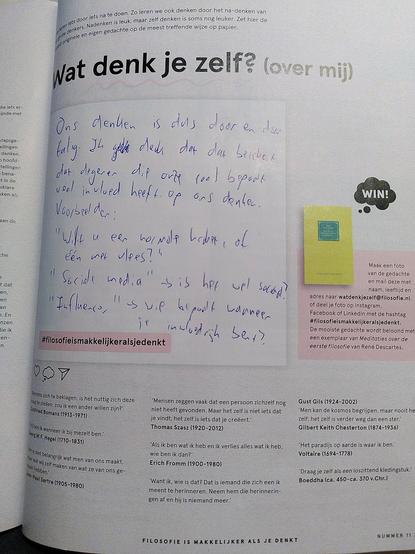 iets na te doen. Zo leren we ook denken door het na-denken van
denkers. Nadenken is leuk, maar zelf denken is soms nog leuker. Zet hier de
originele en eigen gedachte op de meest treffende wijze op papier.
Wat denk je zelf? (over mij)
Ons denken is dus door en door
talig. Ik denk dat dat betekent
dat degene die onze taal bepaalt
veel invloed heeft op ons denken.
Voorbeelden:
"Wilt u een normale of
één met vlees?"
"Social media" → is het wel sociaal?
"Influencer" → wie bepaalt wanneer
je invloedrijk bent?
#filosofieismakkelijkeralsjedenkt
WIN!
Maak een foto
van de gedachte
en mail deze met
naam, leeftijd en
adres naar watdenkjezelf@filosofie.nl
of deel je foto op Instagram,
Facebook of LinkedIn met de hashtag
#filosofieismakkelijkeralsjedenkt.
De mooiste gedachte wordt beloond met
een exemplaar van Meditaties over de
eerste filosofie van René Descartes.
zich te beklagen; is het nuttig zich deze
zou ik een ander willen zijn?'
Godfried Bomans (1913-1971)
wanneer ik bij mezelf ben.'
Hegel (1770-1831)
belangrijk wat men van ons maakt,
wat wij zelf maken van wat ze van ons
hebben.'
Jean-Paul Sartre (1905-1980)
'Mensen zeggen vaak dat een persoon zichzelf nog
niet heeft gevonden. Maar het zelf is niet iets dat
je vindt; het zelf is iets dat je creëert.'
Thomas Szasz (1920-2012)
'Als ik ben wat ik heb en ik verlies alles wat ik heb,
wie ben ik dan?'
Erich Fromm (1900-1980)
'Want ik, wie is dat? Dat is iemand die zich een ik
meent te herinneren. Neem hem die herinnerin-
gen af en hij is niemand meer.'
Gust Gils (1924-2002)
'Men kan de kosmos begrijpen, maar nooit het
zelf; het zelf is verder weg dan een ster.'
Gilbert Keith Chesterton (1874-1936)
'Het paradijs op aarde is waar ik ben.'
Voltaire (1694-1778)
'Draag je zelf als een loszittend kledingstuk.'
Boeddha (ca. 450-ca. 370 v.Chr.)
FILOSOFIE IS MAKKELIJKER ALS JE DENKT
NUMMER 11